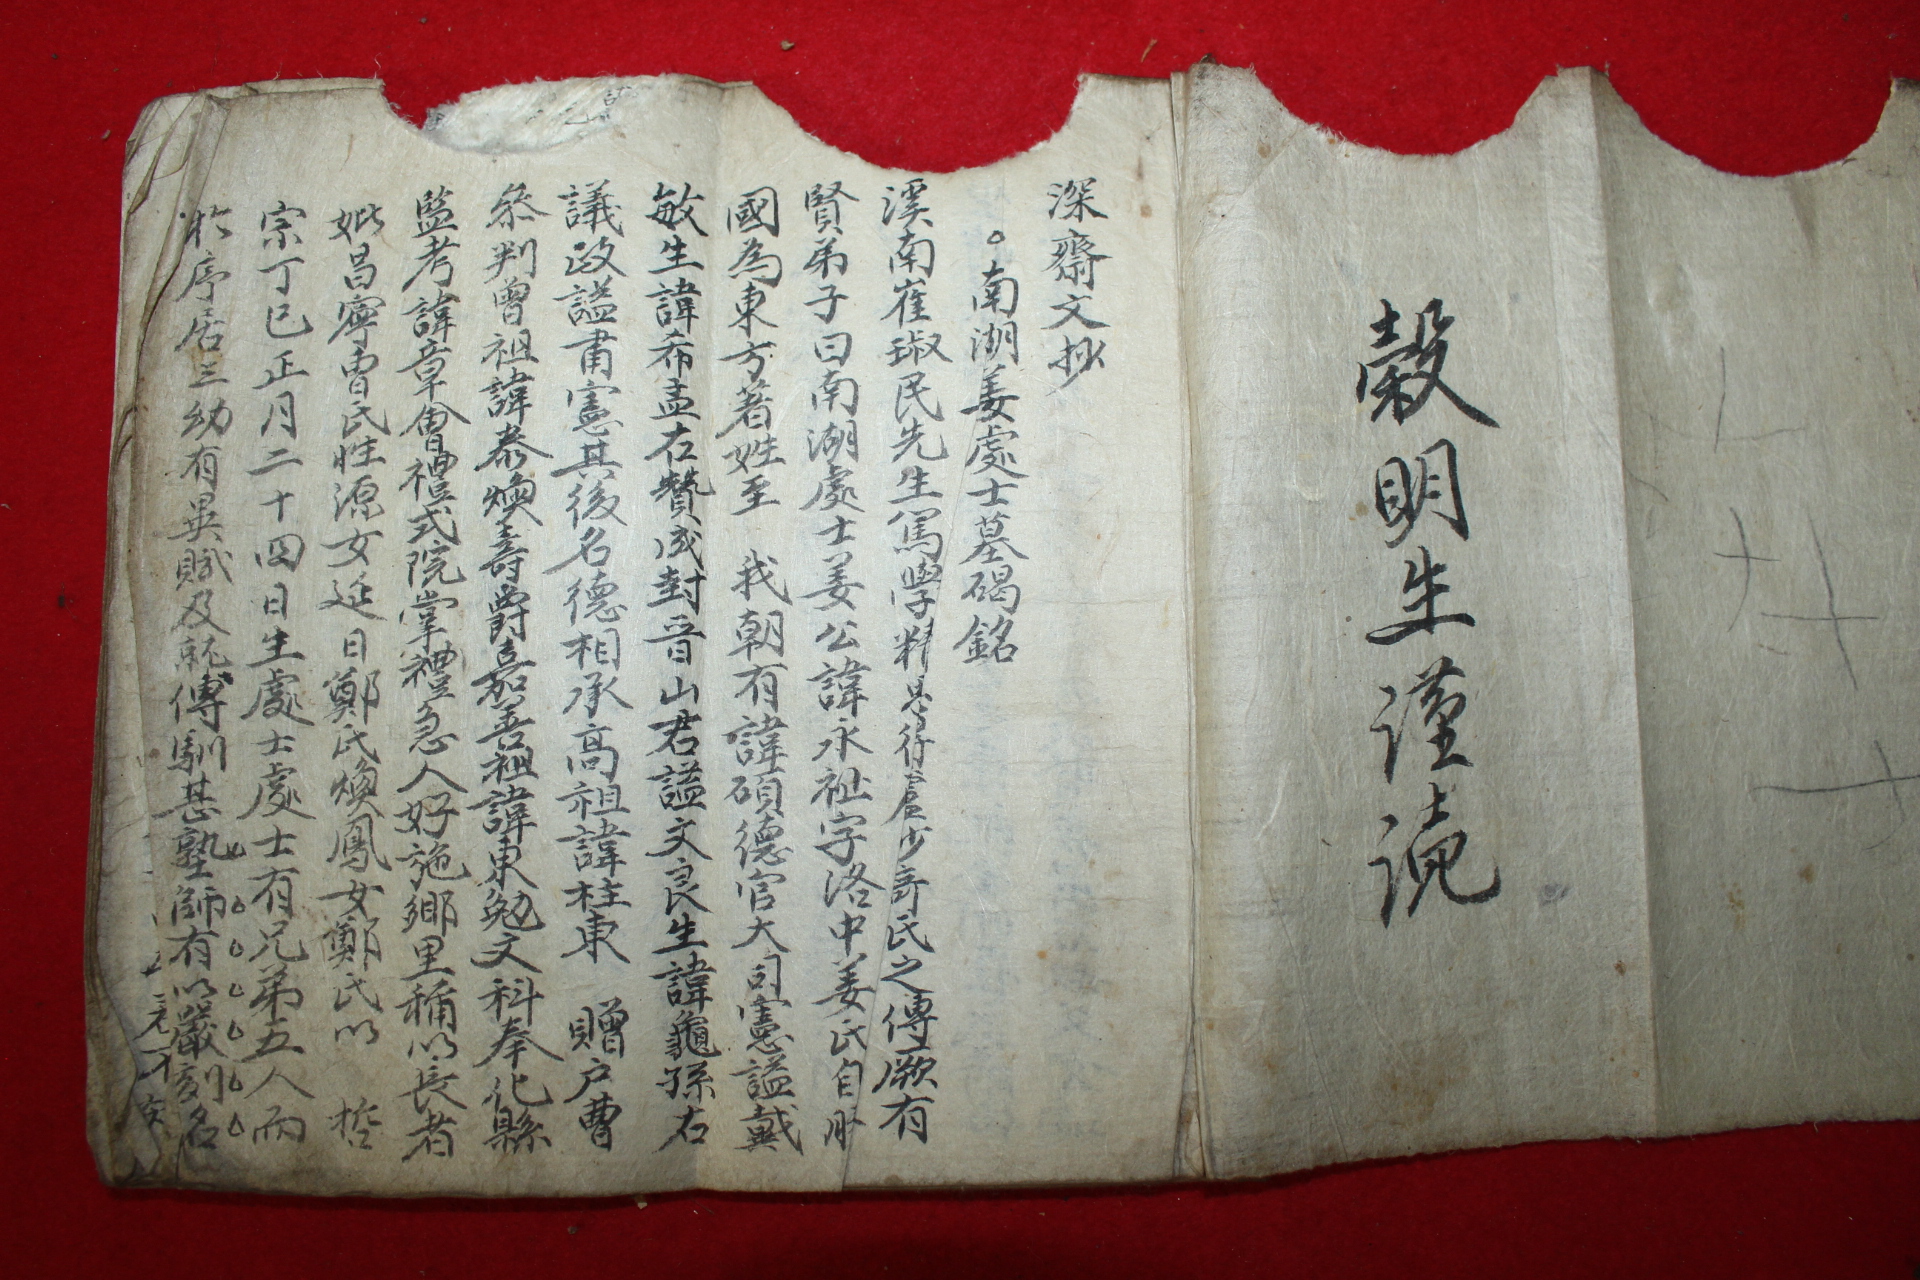 穀明生謹读
深齋文抄
。南湖姜處士墓碣銘
溪南崔琡民先生篤學精 得蘆沙奇氏之傳厥有
賢弟子曰南湖處士姜公諱永祉字洛中姜氏自
國為東方著姓至 我朝有諱碩德官大司憲謚戴
敏生諱希孟右贊成封晉山君謚文良生諱龜孫右
議政謚肅憲其後名德相承高祖諱柱東 贈戶曹
叅判曾祖諱泰煥壽爵嘉善祖諱東勉文科奉化縣
監考諱章會禮式院掌禮急人好施鄉里稱以長者
妣昌寧曺氏性源女延日鄭氏煥鳳女鄭氏以 哲
宗丁巳正月二十四日生處士處士有兄弟五人而
於序居三幼有異賦及就傅馴甚塾師有以嚴刻名